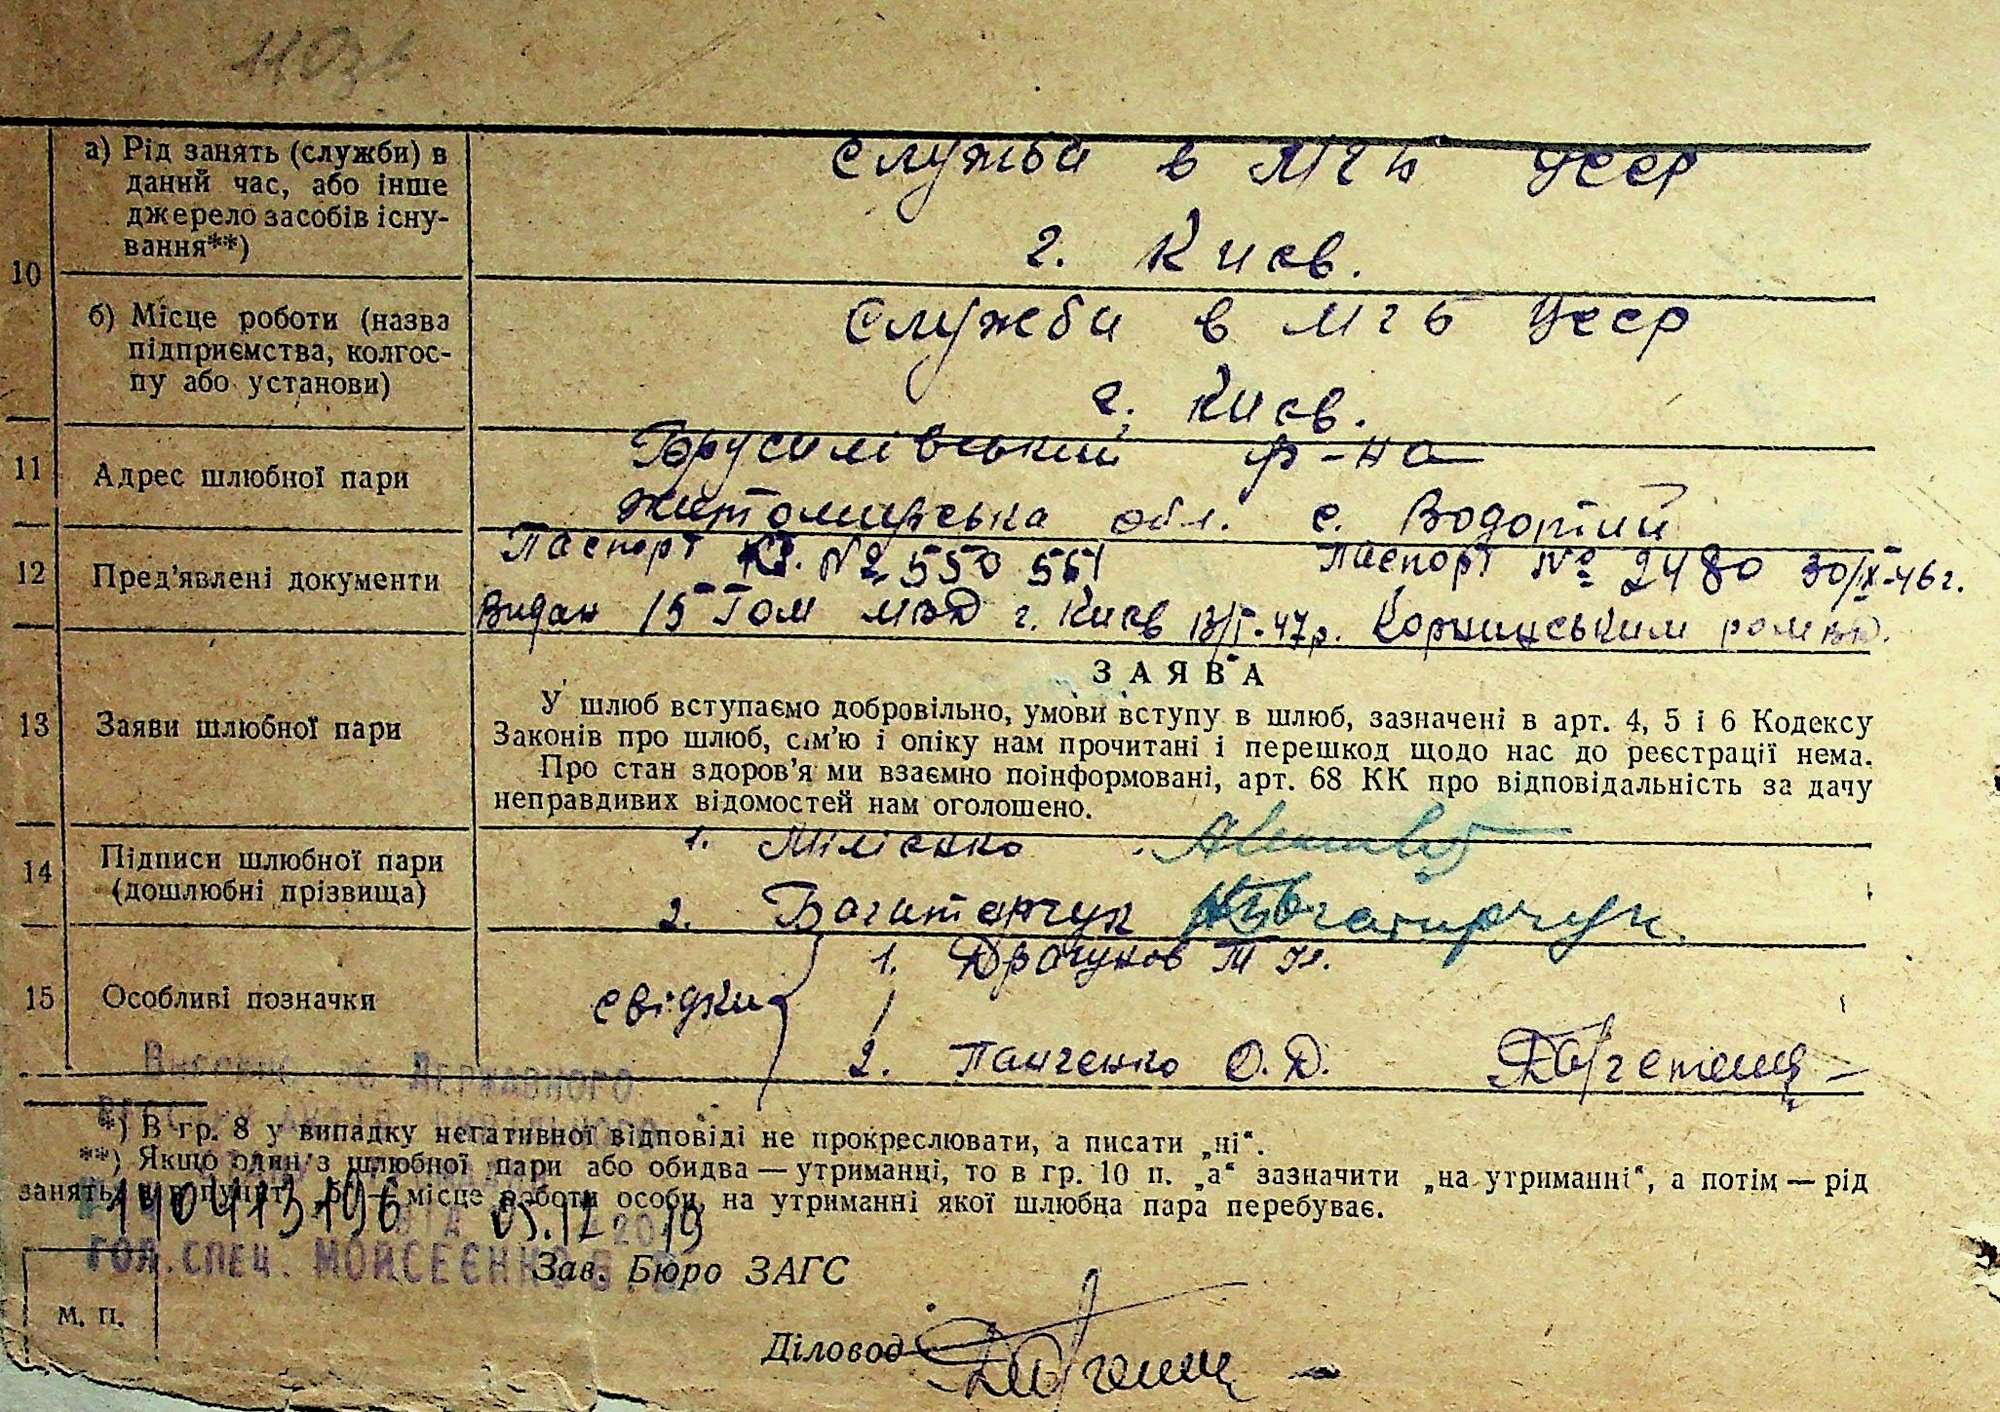 а) Рід занять (служби) в
даний час, або інше
джерело засобів існу-
вання**)
Служби в МГБ УССР
г. Киев.
10
б) Місце роботи (назва
підприємства, колгос-
пу або установи)
Служби в МГБ УССР
г. Киев.
11
Адрес шлюбної пари
Брусилівський р-на
Житомирська обл. с. Водотий
12
Пред'явлені документи
Паспорт № 550 551
Видан 15 ГОМ МВД г. Киев 13/І-47р.
Паспорт № 2480 30/ІХ-46г.
Корнинським
13
Заяви шлюбної пари
ЗАЯВА
У шлюб вступаємо добровільно, умови вступу в шлюб, зазначені в арт. 4, 5 і 6 Кодексу
Законів про шлюб, сім'ю і опіку нам прочитані і перешкод щодо нас до реєстрації нема.
Про стан здоров'я ми взаємно поінформовані, арт. 68 КК про відповідальність за дачу
неправдивих відомостей нам оголошено.
14
Підписи шлюбної пари
(дошлюбні прізвища)
1. Мілієнко
2. Богатирчук Богатирчук
15
Особливі позначки
свідки
1. Драгунов
2. Панченко О. Д.
Державного
*) В гр. 8 у випадку негативної відповіді не прокреслювати, а писати „ні“.
**) Якщо один з шлюбної пари або обидва — утриманці, то в гр. 10 п. „а“ зазначити „на утриманні“, а потім — рід
занять, а в пункті „б“ — місце роботи особи, на утриманні якої шлюбна пара перебуває.
05.12 2019
ГОЛ. СПЕЦ. МОЙСЕЄНКО
Зав. Бюро ЗАГС
М. П.
Діловод